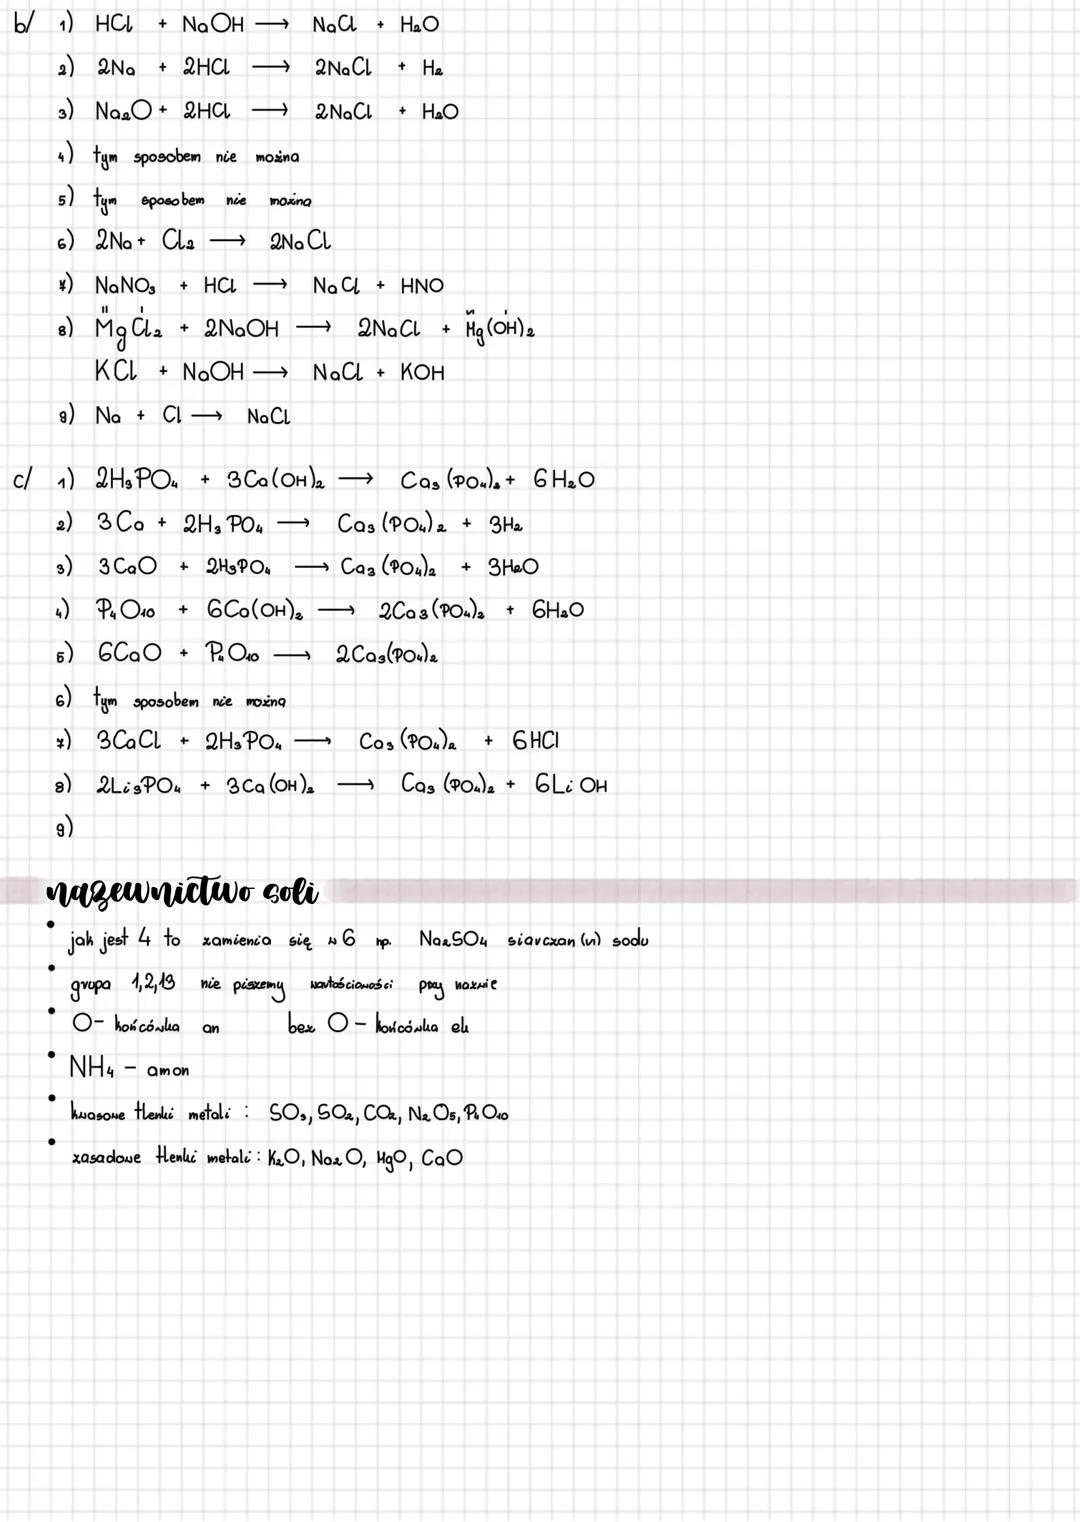 b/ 1) HCl + NaOH → NaCl + H₂O
2) 2Na + 2HCl → 2NaCl + H₂
3) Na₂O + 2HCl → 2NaCl + H₂O
4) tym sposobem nie można
5) tym sposobem nie można
6) 2Na + Cl₂ → 2NaCl
7) NaNO₃ + HCl → NaCl + HNO
8) MgCl₂ + 2NaOH → 2NaCl + Mg(OH)₂
KCl + NaOH → NaCl + KOH
9) Na + Cl → NaCl
c/ 1) 2H₃PO₄ + 3Ca(OH)₂ → Ca₃(PO₄)₂ + 6H₂O
2) 3Ca + 2H₃PO₄ → Ca₃(PO₄)₂ + 3H₂
3) 3CaO + 2H₃PO₄ → Ca₃(PO₄)₂ + 3H₂O
4) P₄O₁₀ + 6Ca(OH)₂ → 2Ca₃(PO₄)₂ + 6H₂O
5) 6CaO + P₄O₁₀ → 2Ca₃(PO₄)₂
6) tym sposobem nie można
7) 3CaCl + 2H₃PO₄ → Ca₃(PO₄)₂ + 6HCl
8) 2Li₃PO₄ + 3Ca(OH)₂ → Ca₃(PO₄)₂ + 6LiOH
9)
nazewnictwo soli
• jak jest 4 to zamienia się w 6 np. Na₂SO₄ siarczan (VI) sodu
• grupa 1,2,13 nie piszemy wartościowości przy nazwie
• O- końcówka an bez O - końcówka ek
• NH₄ - amon
• kwasowe tlenki metali : SO₃, SO₂, CO₂, N₂O₅, P₄O₁₀
• zasadowe tlenki metali : K₂O, Na₂O, MgO, CaO